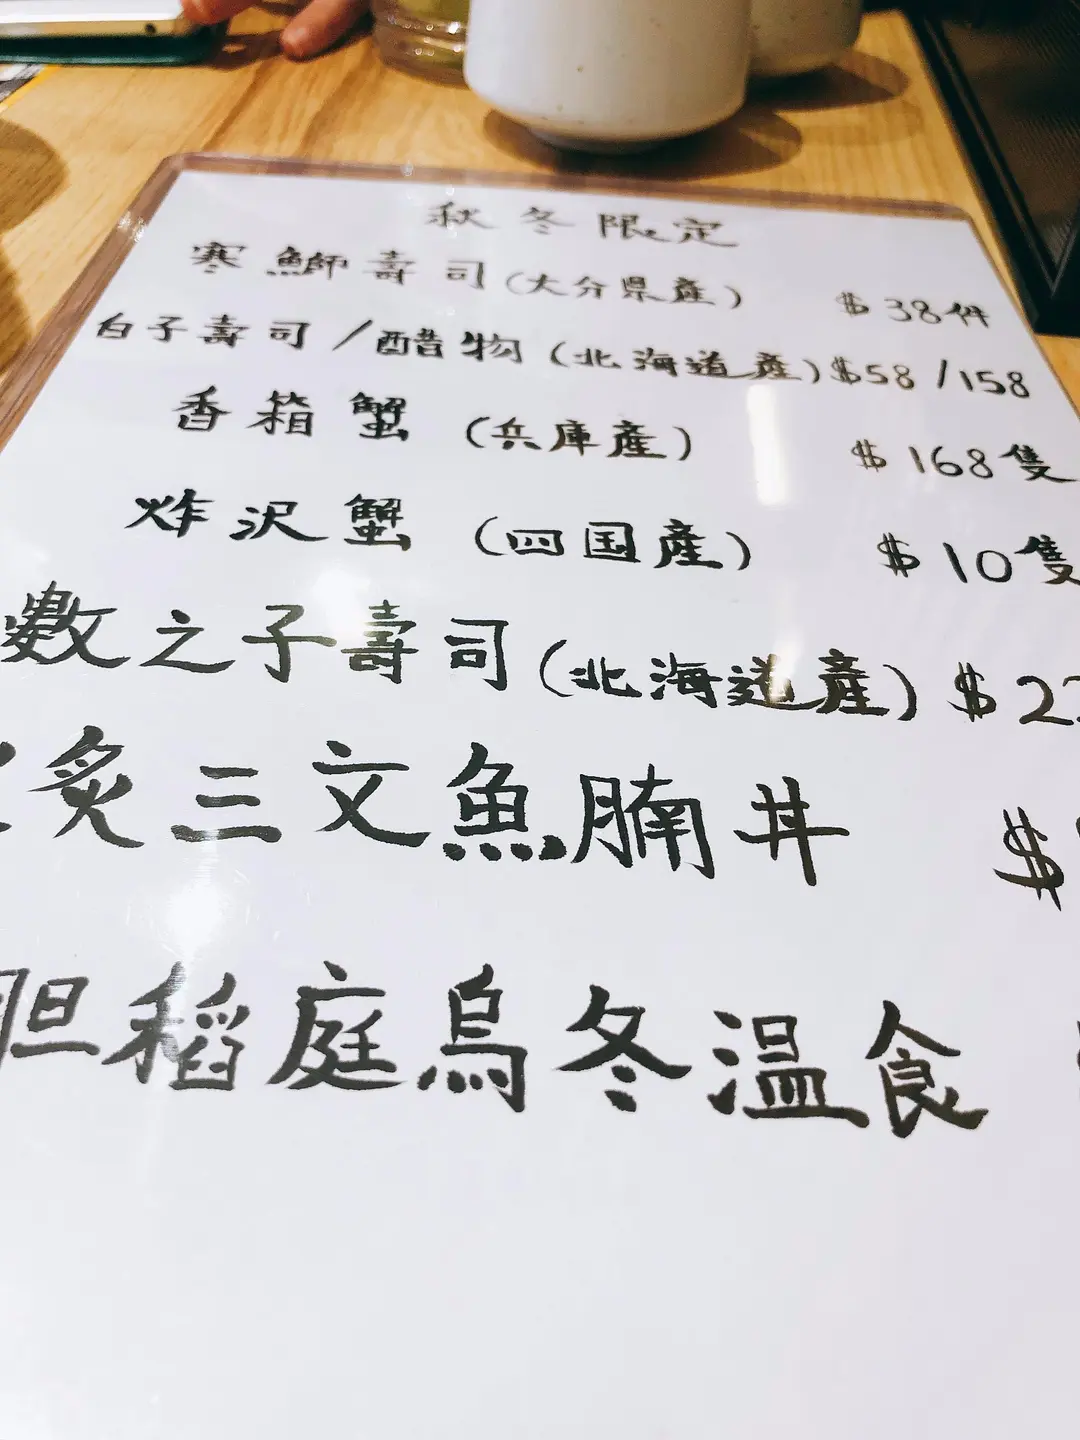 秋冬限定
寒鰤壽司(大分県産) $38件
白子壽司/醋物(北海道產)$58/158
香箱蟹(兵庫產) $168隻
炸沢蟹(四国產) $10隻
數之子壽司(北海道產) $2
炙三文魚腩丼 $
胆稻庭烏冬温食